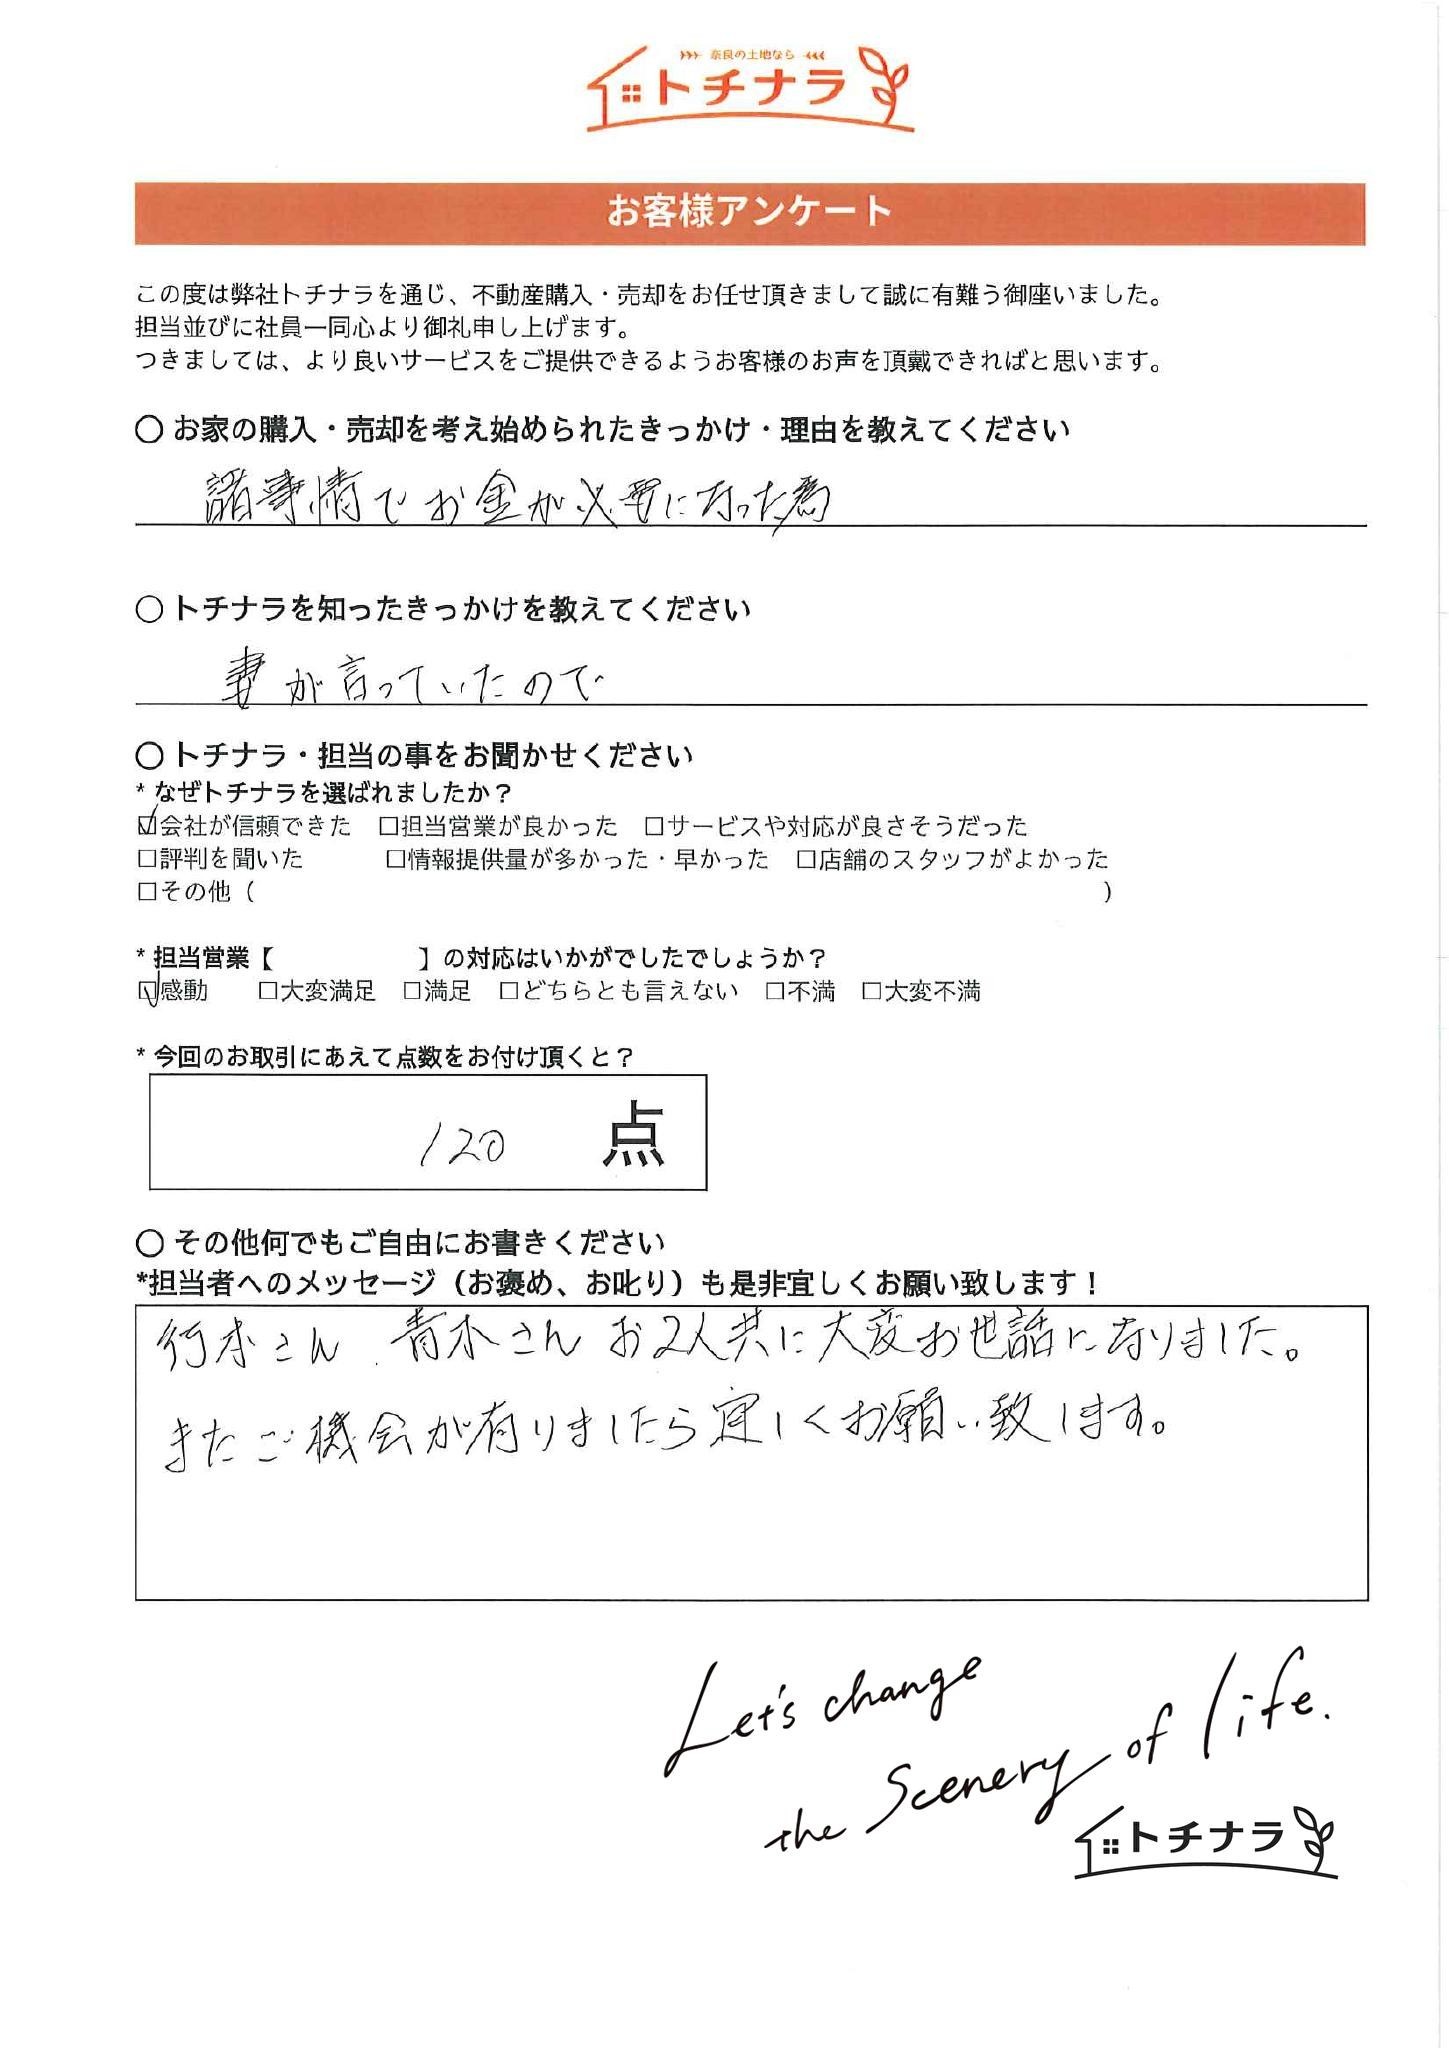 奈良の土地なら
トチナラ
お客様アンケート
この度は弊社トチナラを通じ、不動産購入・売却をお任せ頂きまして誠に有難う御座いました。
担当並びに社員一同心より御礼申し上げます。
つきましては、より良いサービスをご提供できるようお客様のお声を頂戴できればと思います。
○ お家の購入・売却を考え始められたきっかけ・理由を教えてください
諸事情でお金が必要になった為
○ トチナラを知ったきっかけを教えてください
妻が言っていたので
○ トチナラ・担当の事をお聞かせください
* なぜトチナラを選ばれましたか？
☑会社が信頼できた □担当営業が良かった □サービスや対応が良さそうだった
□評判を聞いた □情報提供量が多かった・早かった □店舗のスタッフがよかった
□その他（ ）
* 担当営業【 】の対応はいかがでしたでしょうか？
☑感動 □大変満足 □満足 □どちらとも言えない □不満 □大変不満
* 今回のお取引にあえて点数をお付け頂くと？
120 点
○ その他何でもご自由にお書きください
*担当者へのメッセージ（お褒め、お叱り）も是非宜しくお願い致します！
行本さん、青木さん お2人共に大変お世話になりました。
またご機会が有りましたら宜しくお願い致します。
Let's change
the Scenery of life.
トチナラ